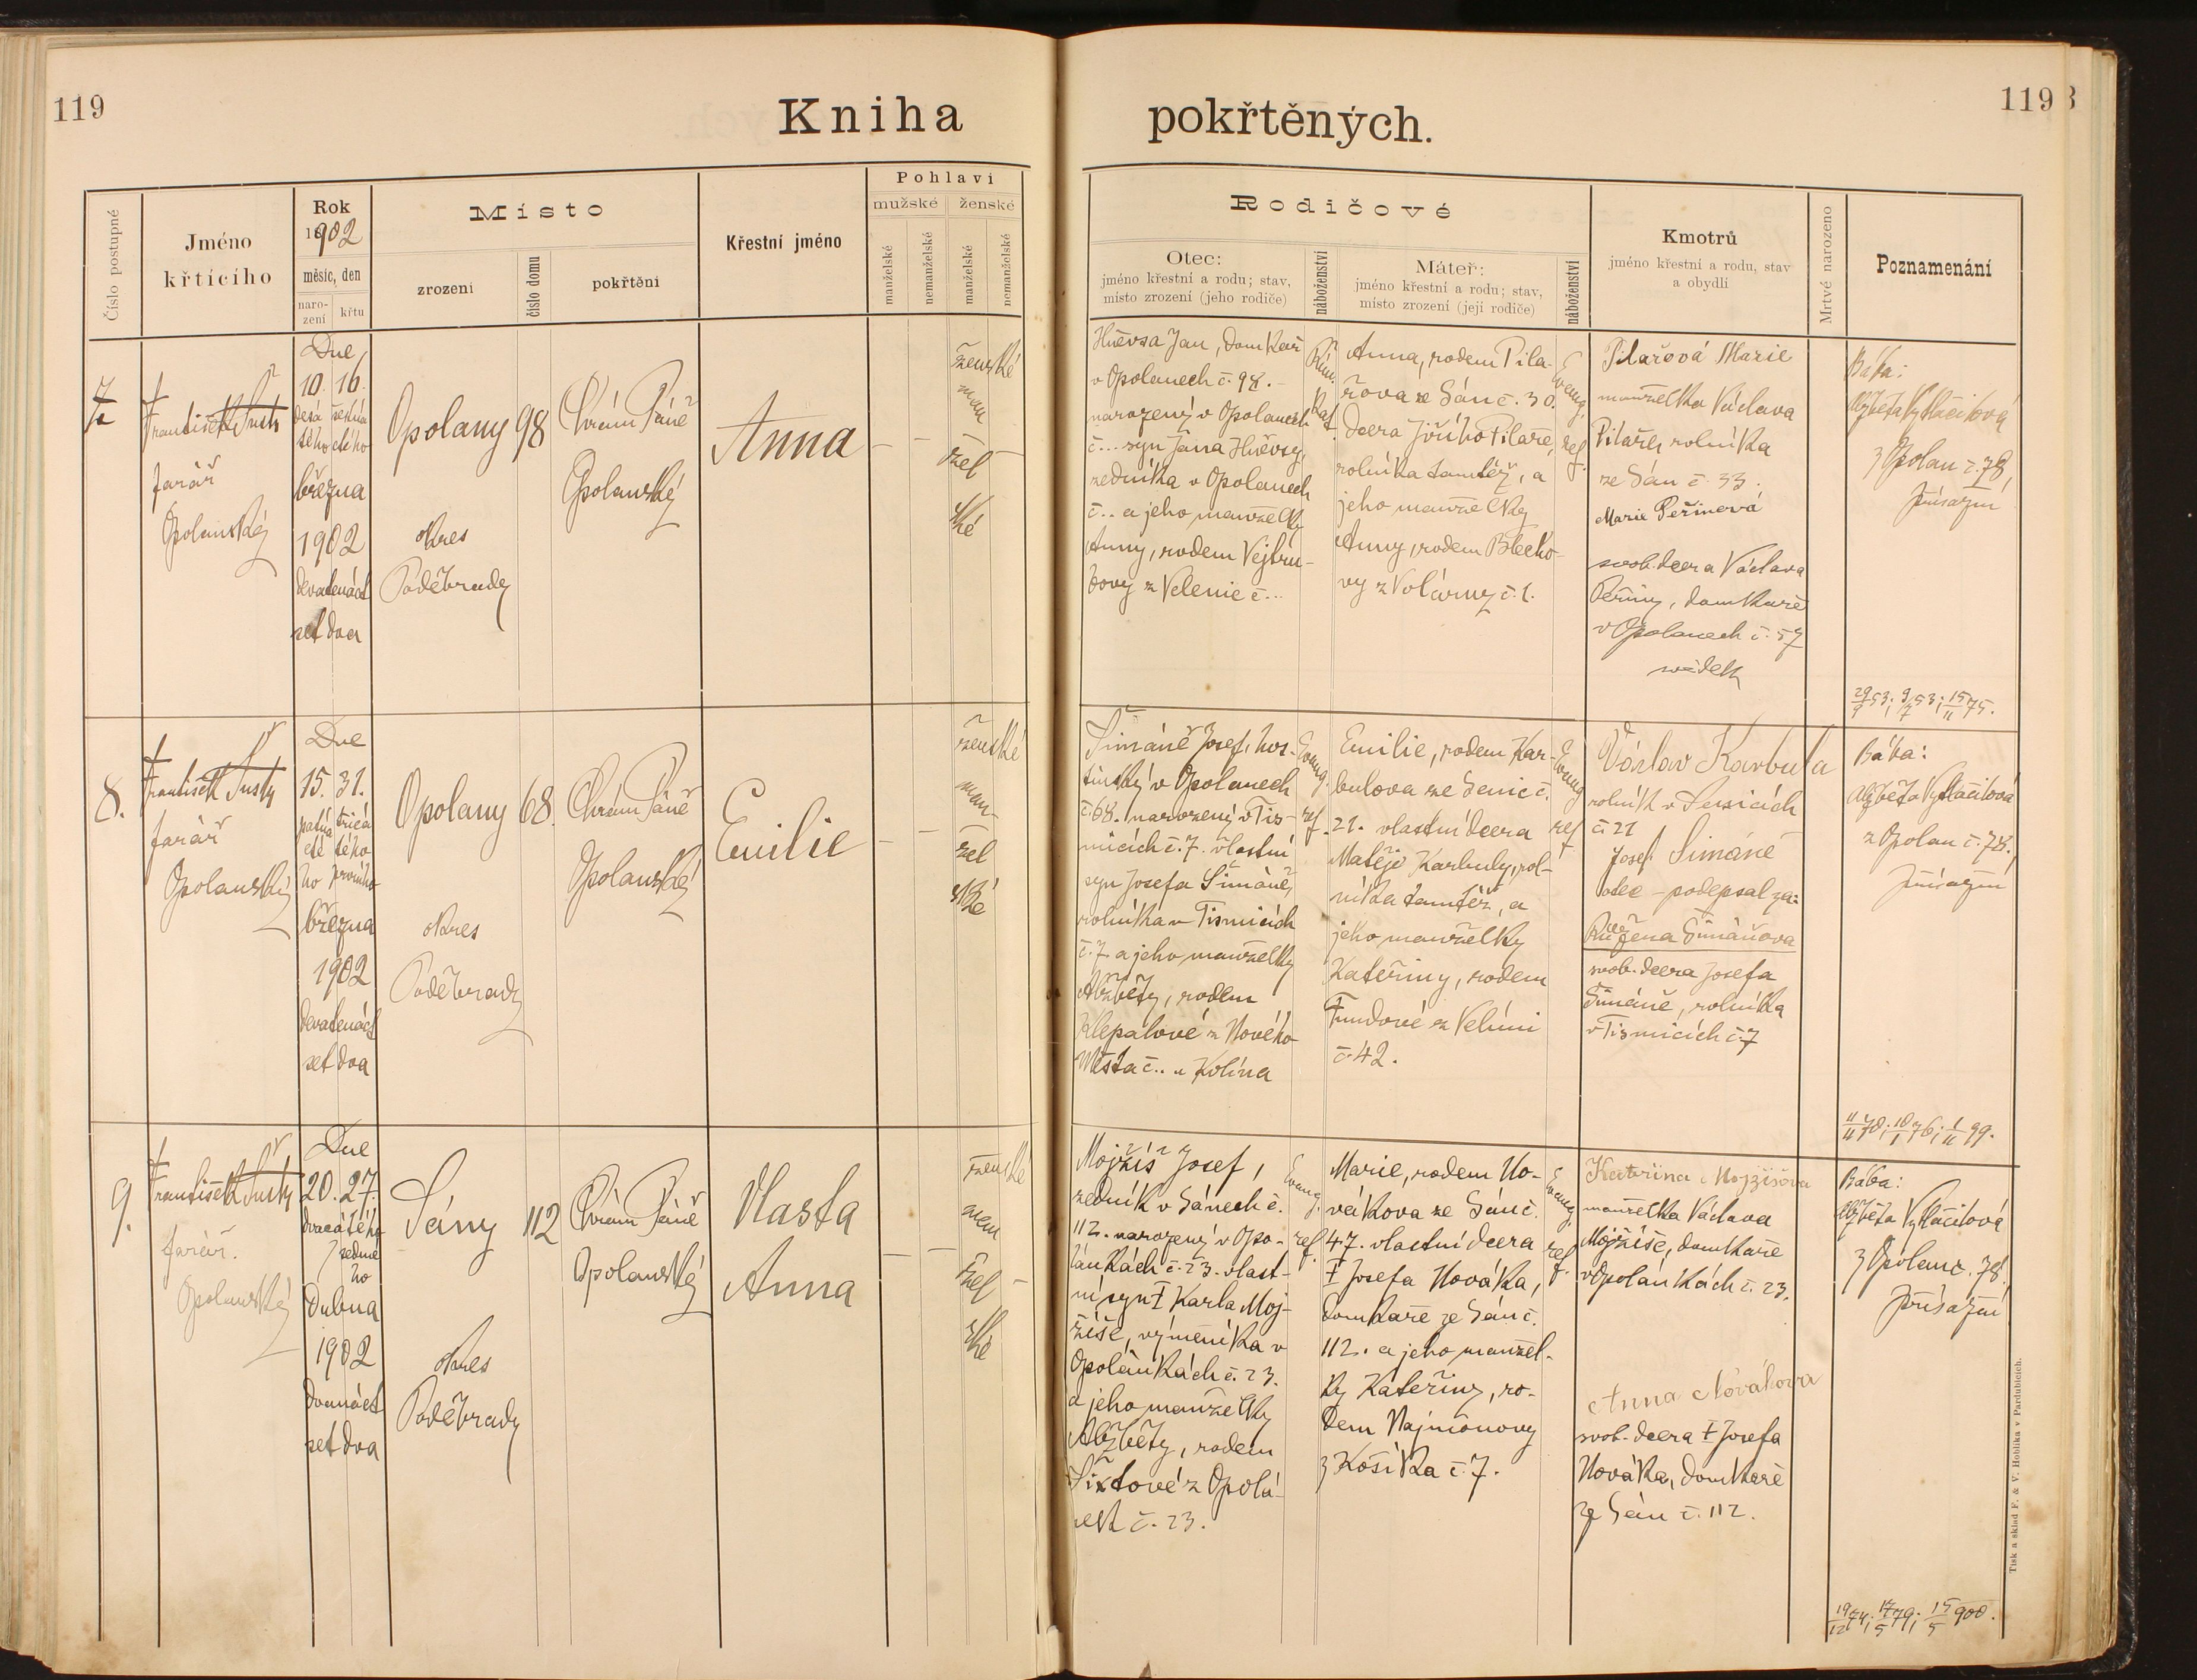 119
Kniha
pokřtěných.
119
3
Číslo postupné
Jméno
křtícího
Rok
1902
měsíc, den
naro-
zení
křtu
Místo
zrození
číslo domu
pokřtění
Křestní jméno
Pohlaví
mužské
ženské
manželské
nemanželské
manželské
nemanželské
Rodičové
Otec:
jméno křestní a rodu; stav,
místo zrození (jeho rodiče)
náboženství
Máteř:
jméno křestní a rodu; stav,
místo zrození (její rodiče)
náboženství
Kmotrů
jméno křestní a rodu, stav
a obydlí
Mrtvé narozeno
Poznamenání
7
František Šustr
farář
Opolanský
Dne
10. 16.
desá šestná
tého ctého
března
1902
devatenáct
set dva
Opolany 98
okres
Poděbrady
Chrám Páně
Opolanský
Anna
ženské
man
žel
ské
Hněvsa Jan, domkář
v Opolanech č. 98.
narozený v Opolanech
č... syn Jana Hněvsy,
zedníka v Opolanech
č.. a jeho manželky
Anny, rodem Vejtru-
bovy z Velenic č...
Řím.
kat.
Anna, rodem Pila-
řova ze Sán č. 30.
dcera Jiřího Pilaře,
rolníka tamtéž, a
jeho manželky
Anny, rodem Blecho-
vy z Volárny č. 1.
Evang.
ref.
Pilařová Marie
manželka Václava
Pilaře, rolníka
ze Sán č. 33.
Marie Peřinová
svob. dcera Václava
Peřiny, domkaře
v Opolanech č. 57
svědek
Bába:
Alžběta Vytlačilová
z Opolan č. 78,
přísažní
29/9 53; 9/7 53; 15/11 75.
8.
František Šustr
farář
Opolanský
Dne
15. 31.
patná třicá
cté tého
ho prvního
března
1902
devatenáct
set dva
Opolany 68
okres
Poděbrady
Chrám Páně
Opolanský
Emilie
ženské
man-
žel
ské
Šimáně Josef, hos-
tinský v Opolanech
č. 68. narozený v Tis-
micích č. 7. vlastní
syn Josefa Šimáně,
rolníka v Tismicích
č. 7 a jeho manželky
Alžběty, rodem
Klepalové z Nového
Města č.. u Kolína
Evang.
ref.
Emilie, rodem Kar-
bulova ze Senic č.
21. vlastní dcera
Matěje Karbuly, rol-
níka tamtéž, a
jeho manželky
Kateřiny, rodem
Fundové z Velimi
č. 42.
Evang.
ref.
Václav Karbula
rolník v Senicích
č. 21
Josef Šimáně
otec – podepsal za:
Růžena Šimáňova
svob. dcera Josefa
Šimáně, rolníka
v Tismicích č. 7
Bába:
Alžběta Vytlačilová
z Opolan č. 78.,
přísažní
11/11 70; 18/1 76; 1/11 99.
9.
František Šustr
farář.
Opolanský
Dne
20. 27.
dvacátého
sedmé
ho
Dubna
1902
devatenáct
set dva
Sány 112
okres
Poděbrady
Chrám Páně
Opolanský
Vlasta
Anna
ženské
man
žel
ské
Mojžíš Josef,
zedník v Sánech č.
112. narozený v Opo-
lánkách č. 23. vlast-
ní syn † Karla Moj-
žíše, výměníka v
Opolánkách č. 23.
a jeho manželky
Alžběty, rodem
Šixtové z Opolá-
nek č. 23.
Evang.
ref.
Marie, rodem No-
vákova ze Sán č.
47. vlastní dcera
† Josefa Nováka,
domkaře ze Sán č.
112. a jeho manžel-
ky Kateřiny, ro-
dem Najmonovy
z Košíka č. 7.
Evang.
ref.
Kateřina Mojžíšova
manželka Václava
Mojžíše, domkaře
v Opolánkách č. 23.
Anna Novákova
svob. dcera † Josefa
Nováka, domkaře
ze Sán č. 112.
Bába:
Alžběta Vytlačilová
z Opolan č. 78,
přísažní
19/12 74; 17/5 79; 15/5 900.
Tisk a sklad F. & V. Hoblíka v Pardubicích.